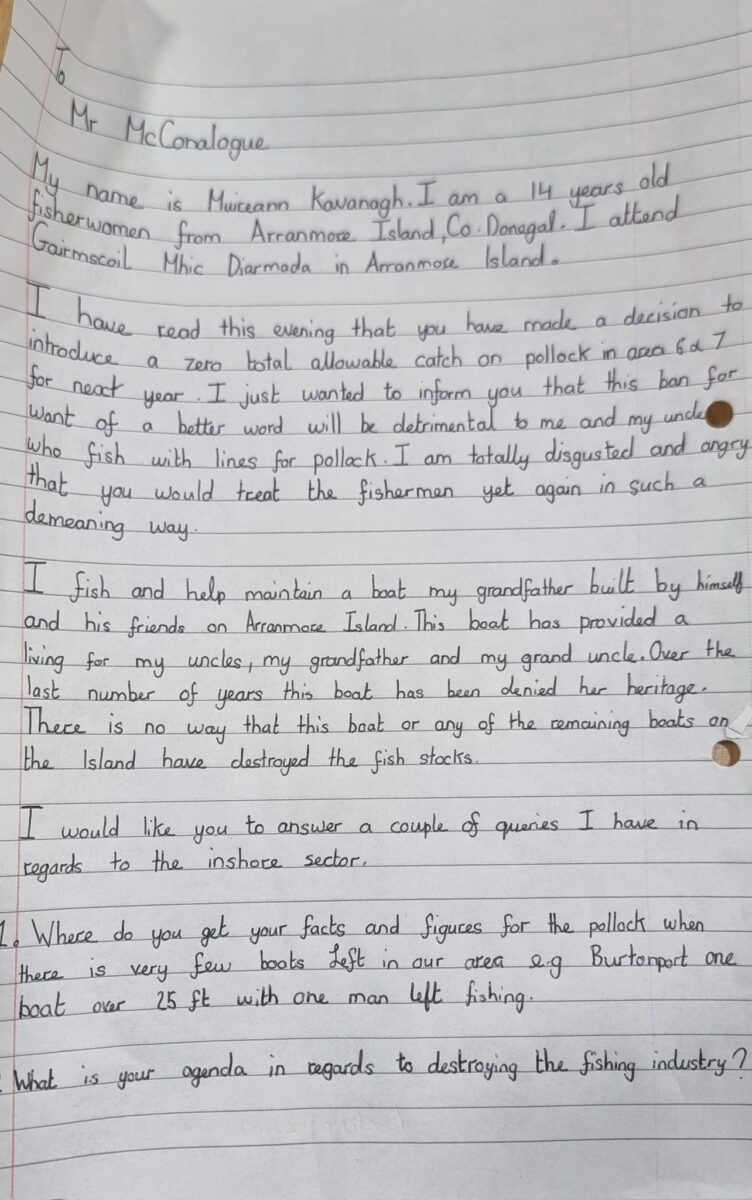 To
Mr McConalogue
My name is Muireann Kavanagh. I am a 14 years old
fisherwomen from Arranmore Island, Co. Donegal. I attend
Gairmscoil Mhic Diarmada in Arranmore Island.
I have read this evening that you have made a decision to
introduce a zero total allowable catch on pollock in area 6 & 7
for next year. I just wanted to inform you that this ban for
want of a better word will be detrimental to me and my uncle
who fish with lines for pollack. I am totally disgusted and angry
that you would treat the fishermen yet again in such a
demeaning way.
I fish and help maintain a boat my grandfather built by himself
and his friends on Arranmore Island. This boat has provided a
living for my uncles, my grandfather and my grand uncle. Over the
last number of years this boat has been denied her heritage.
There is no way that this boat or any of the remaining boats on
the Island have destroyed the fish stocks.
I would like you to answer a couple of queries I have in
regards to the inshore sector.
1. Where do you get your facts and figures for the pollock when
there is very few boats left in our area e.g Burtonport one
boat over 25 ft with one man left fishing.
What is your agenda in regards to destroying the fishing industry?